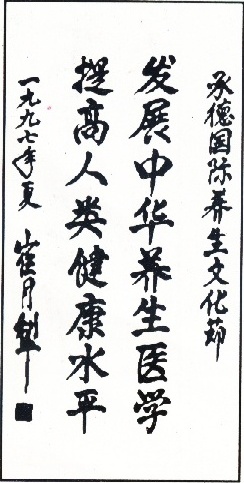 承德国际养生文化节
发展中华养生医学
提高人类健康水平
一九九七年夏 崔月犁